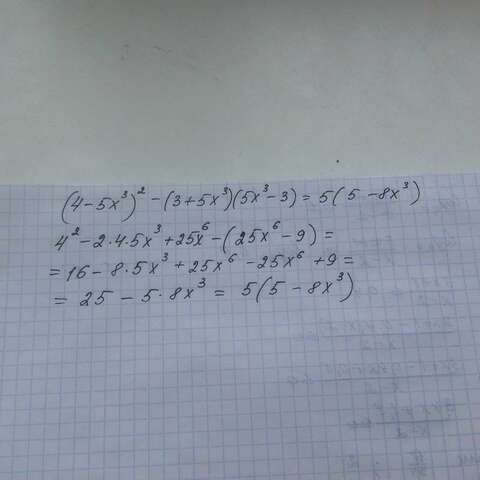 (4-5x³)² - (3+5x³)(5x³-3) = 5(5-8x³)
4² - 2·4·5x³ + 25x⁶ - (25x⁶ - 9) =
= 16 - 8·5x³ + 25x⁶ - 25x⁶ + 9 =
= 25 - 5·8x³ = 5(5 - 8x³)